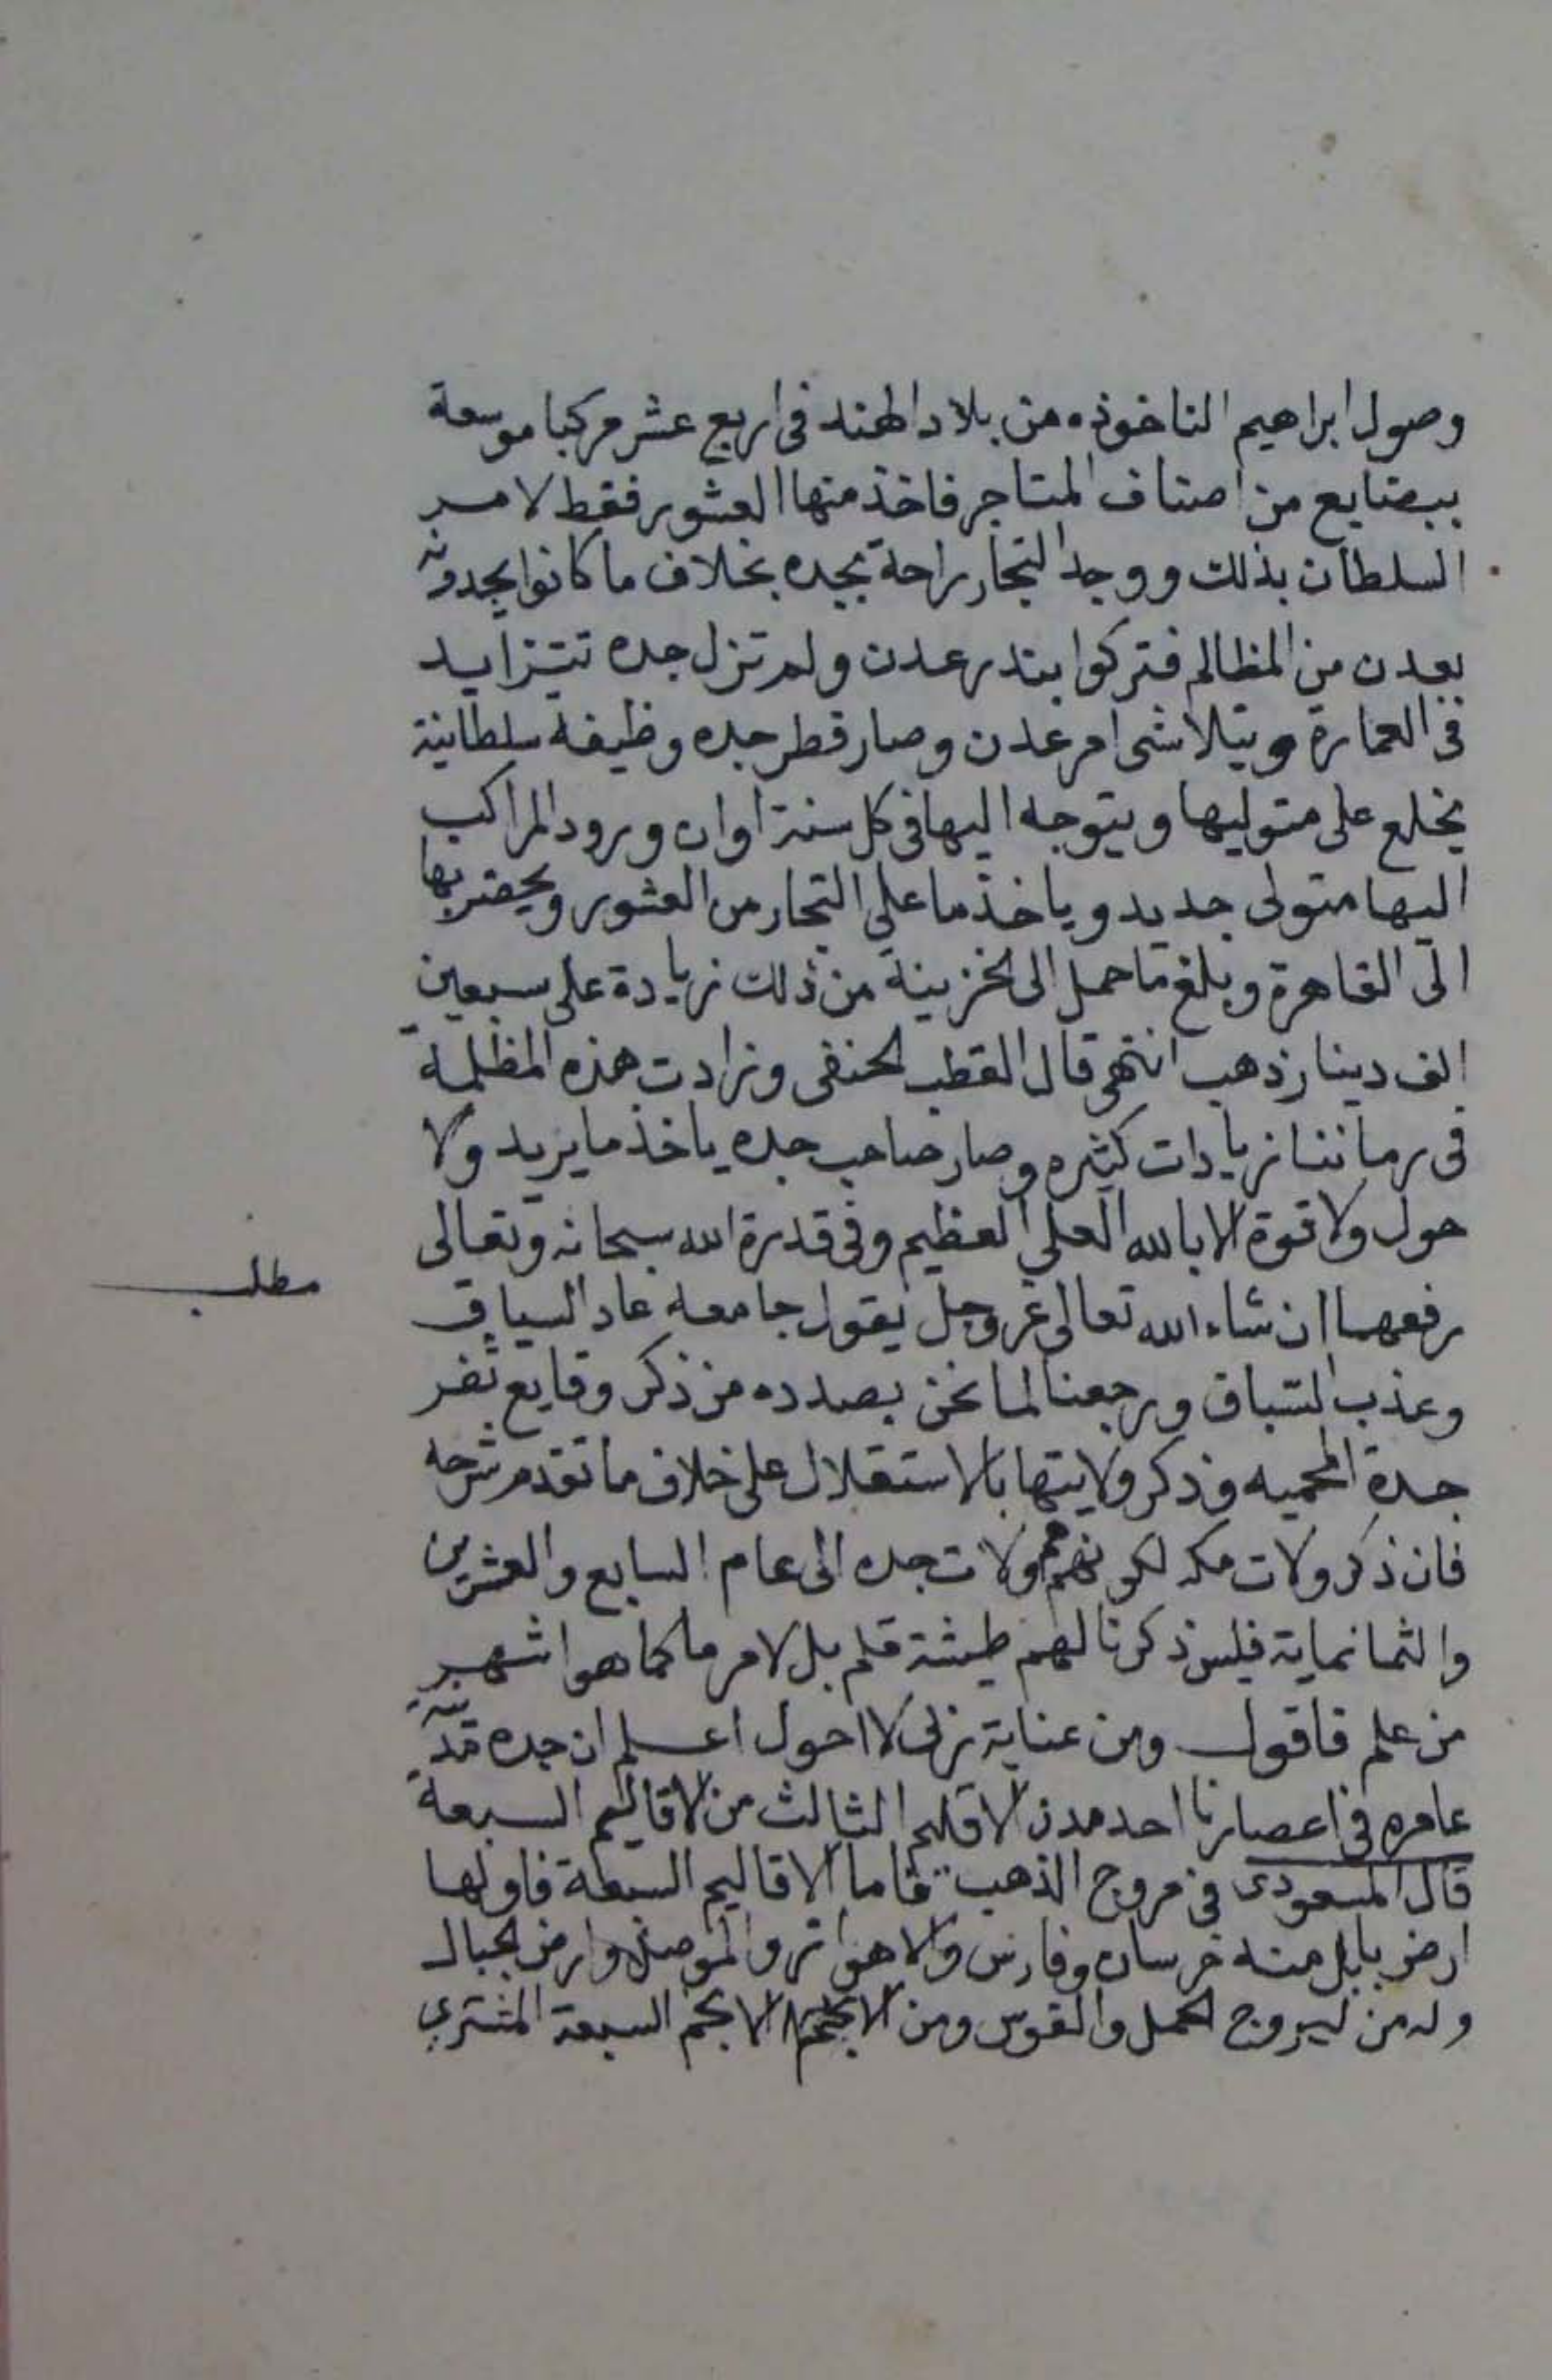 وصول ابراهيم الناخوذه من بلاد الهند في اربع عشر مركبا موسعة
ببضايع من اصناف المتاجر فاخذ منها العشور فقط لامر
السلطان بذلك ووجد التجار راحة بجده بخلاف ما كانوا يجدونه
بعدن من المظالم فتركوا بندر عدن ولم تزل جده تتزايد
في العمارة ويتلاشى امر عدن وصار قطر جده وظيفة سلطانية
يخلع على متوليها ويتوجه اليها في كل سنة اوان ورود المراكب
اليها متولى جديد وياخذ ما على التجار من العشور ويحضر بها
الى القاهرة وبلغ ما حمل الى الخزينة من ذلك زيادة على سبعين
الف دينار ذهب انتهى قال القطب الحنفي وزادت هذه المظلمة
في زماننا زيادات كثيره وصار صاحب جده ياخذ ما يريد ولا
حول ولا قوة الا بالله العلي العظيم وفي قدرة الله سبحانه وتعالى
مطلب
رفعها ان شاء الله تعالى عز وجل يقول جامعه عاد السياق
وعذب السباق ورجعنا لما نحن بصدده من ذكر وقايع ثغر
جدة المحميه وذكر ولايتها بالاستقلال على خلاف ما تقدم شرحه
فان ذكر ولات مكه لكونهم ولات جده الى عام السابع والعشرين
والثمانماية فليس ذكرنا لهم طيشة قلم بل لامر ما كما هو اشهر
من علم فاقول ومن عناية ربي لا احول اعلم ان جده
عامره في اعصارنا احد مدن الاقليم الثالث من الاقاليم السبعة
قال المسعودى في مروج الذهب فاما الاقاليم السبعة فاولها
ارض بابل منه خرسان وفارس والاهواز والموصل وارض الجبال
وله من البروج الحمل والقوس ومن الانجم السبعة المشتري